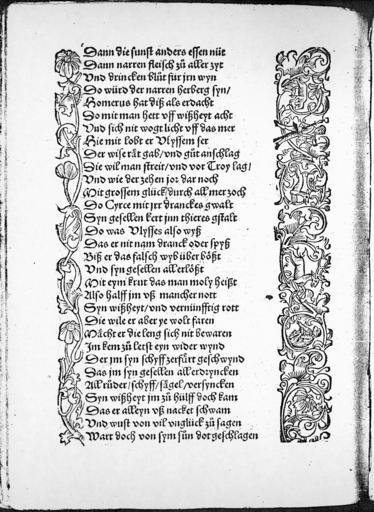 Dann die sunst anders essen nüt
Dann narren fleisch zů aller zyt
Vnd drincken blůt für jrn wyn
Do würd der narren herberg syn/
Homerus hat diß als erdacht
Do mit man hett vff wißheyt acht
Vnd sich nit wogt licht vff das mer
Hie mit lobt er Vlyssem ser
Der wise rät gab/vnd gůt anschlag
Die wil man streit/vnd vor Troy lag/
Vnd wie der zehen jor dar noch
Mit grossem glück/durch all mer zoch
Do Cyrce mit jrr dranckes gwalt
Syn gesellen kert jnn thieres gstalt
Do was Vlysses also wyß
Das er nit nam dranck oder spyß
Biß er das falsch wyb über bößt
Vnd syn gesellen all erlößt
Mit eym krut das man moly heißt
Also halff jm vß mancher nott
Syn wißheyt/vnd vernünfftig rott
Die wile er aber ye wolt faren
Mächt er die leng sich nit bewaren
Im kem zů letst eyn wider wynd
Der jm syn schyff zerfůrt geschwynd
Das jm syn gesellen all erdryncken
All růder/schyff/sägel/versyncken
Syn wißheyt jm zů hülff doch kam
Das er alleyn vß nacket schwam
Vnd wust von vil vnglück zů sagen
Wart doch von sym sůn dot geschlagen